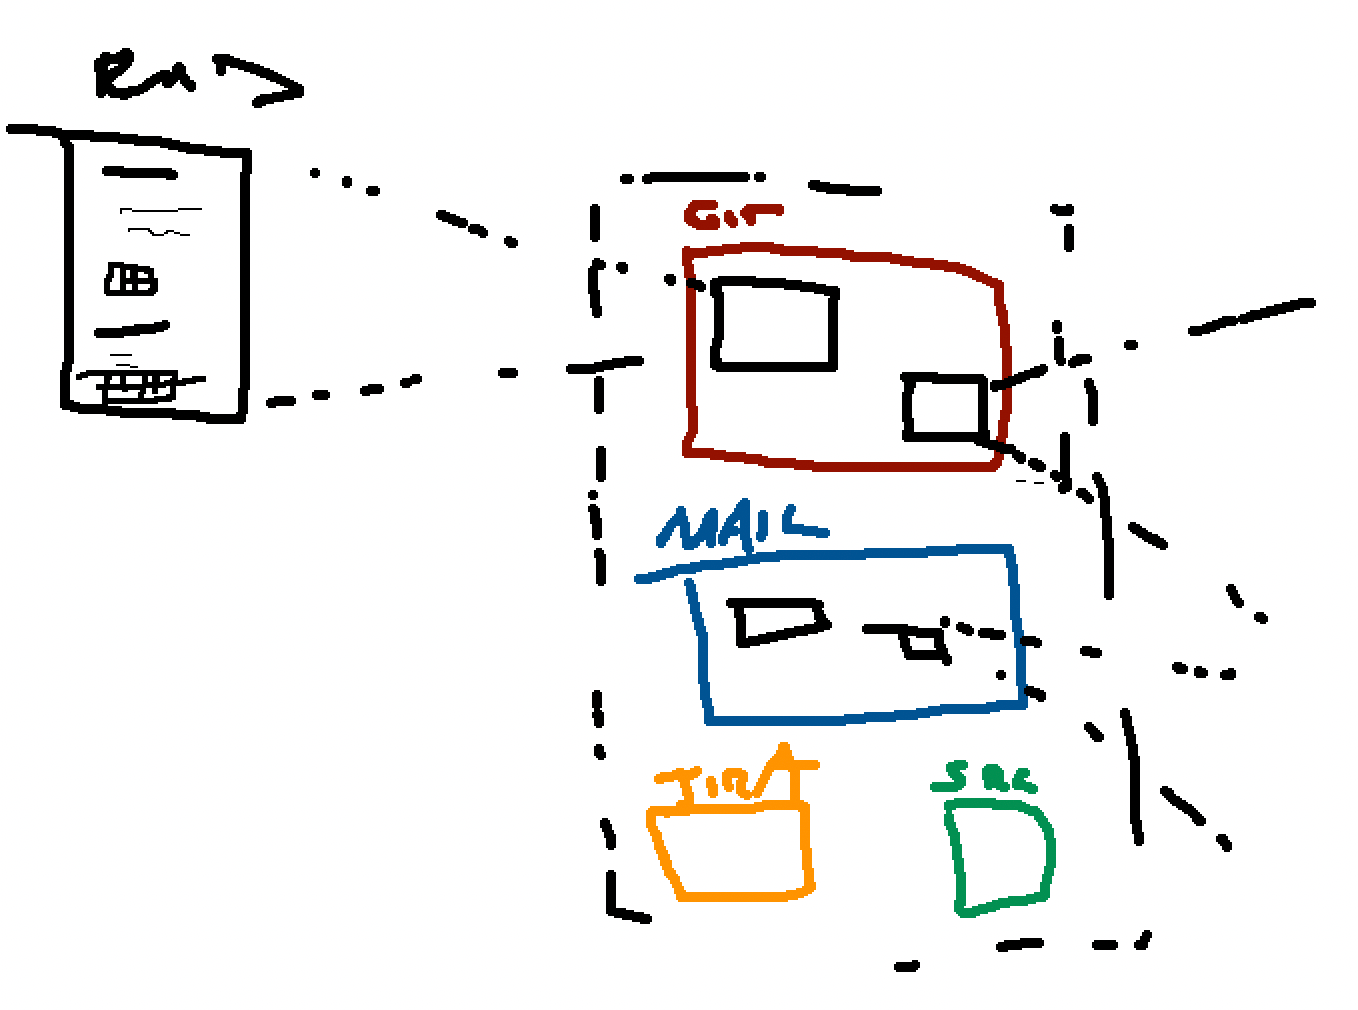 GIT
MAIL
JIRA
SRC